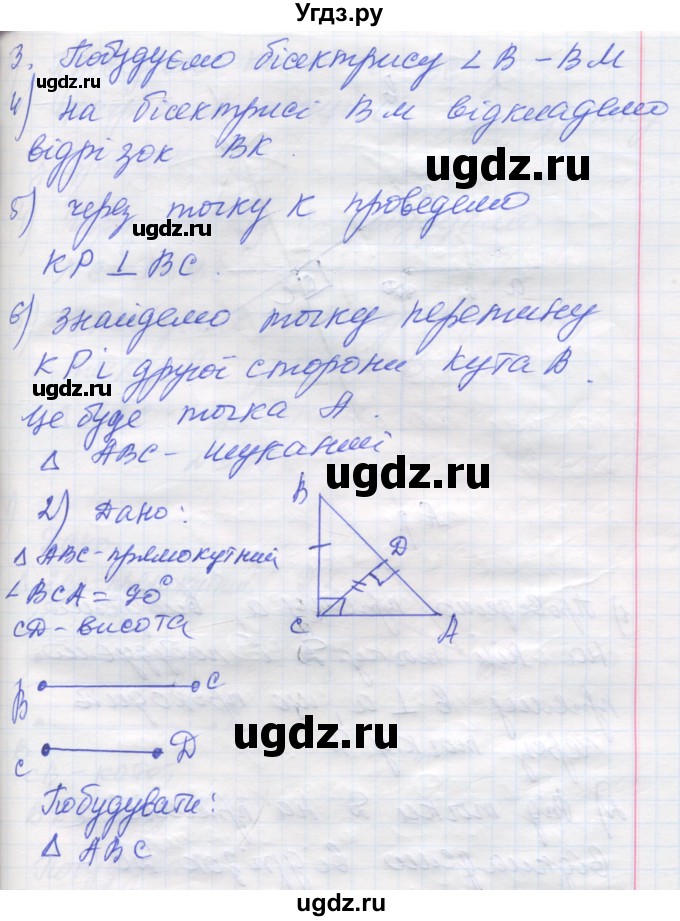 Угдз.ру
3. Побудуємо бісектрису ∠ B - BM
4) на бісектрисі BM відкладемо
відрізок BK.
5) через точку K проведемо
KP ⊥ BC.
6) знайдемо точку перетину
KP і другої сторони кута B.
Це буде точка A.
Δ ABC - шуканий
2) Дано:
Δ ABC - прямокутний
∠ BCA = 90°
CD - висота
B
D
C
A
B C
C D
Побудувати:
Δ ABC
ugdz.ru
ugdz.ru
ugdz.ru
ugdz.ru
ugdz.ru
ugdz.ru
ugdz.ru
ugdz.ru
ugdz.ru